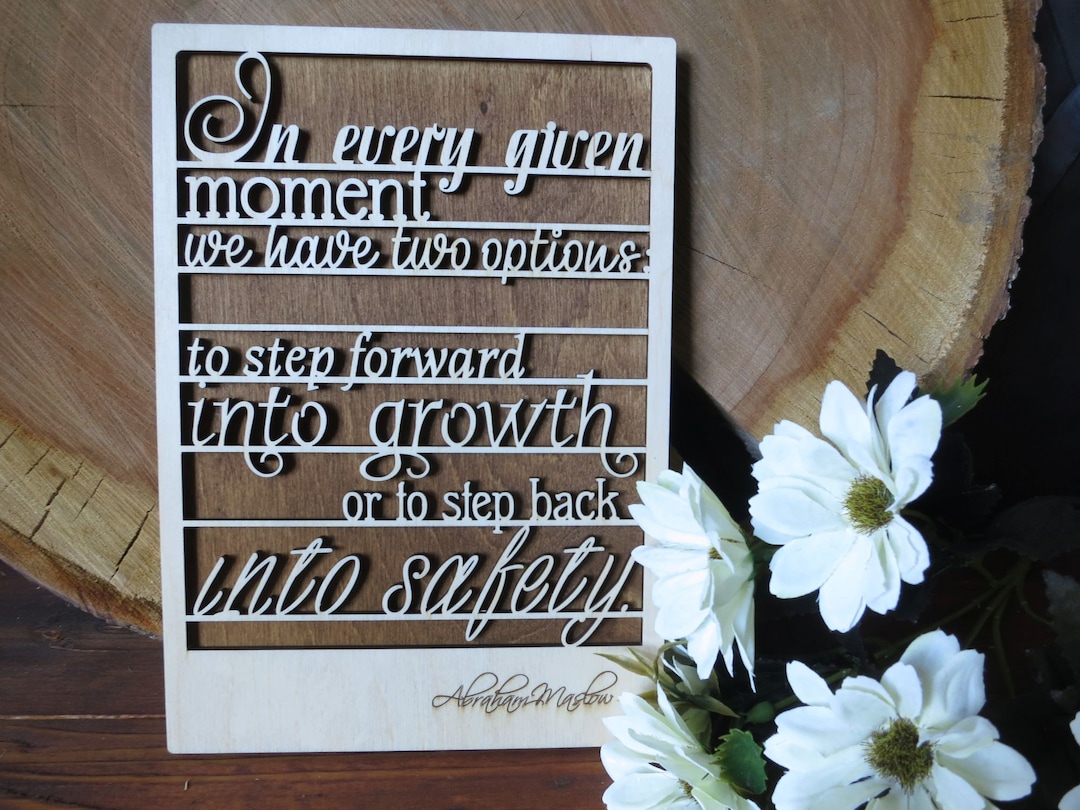 In every given
moment
we have two options:
to step forward
into growth
or to step back
into safety.
Abraham Maslow